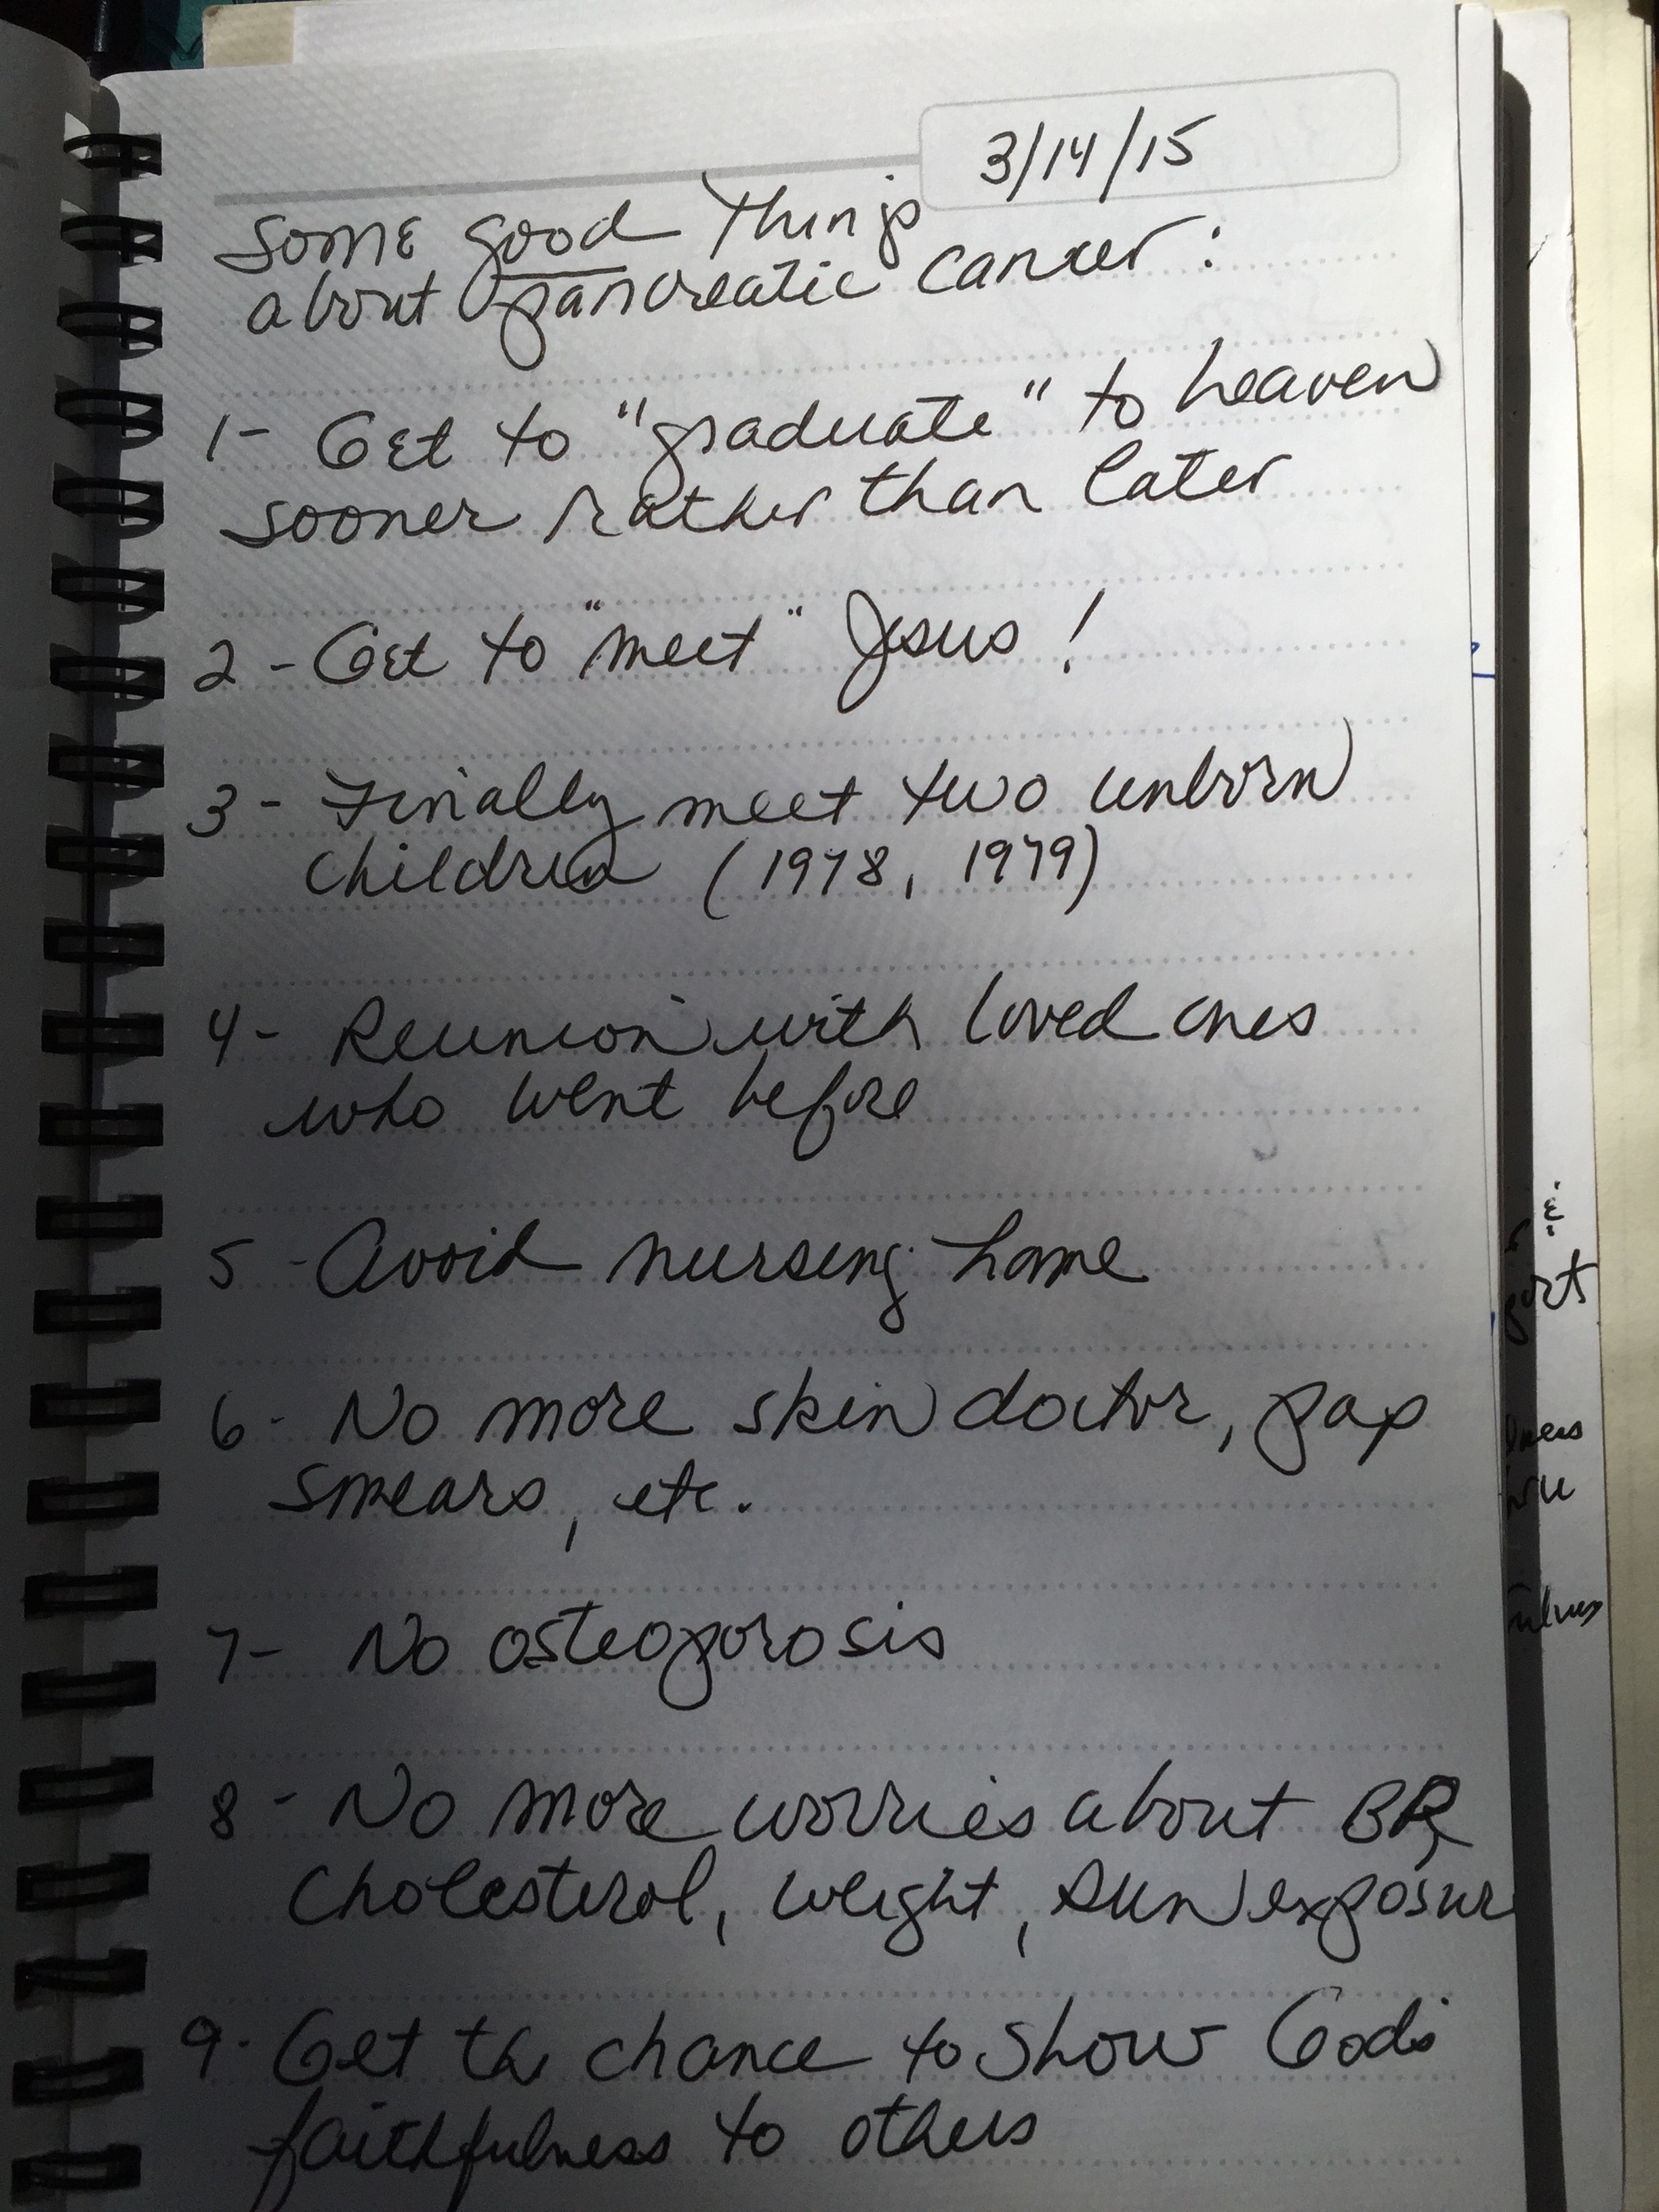 3/14/15
Some good things
about pancreatic cancer:
1- Get to "graduate" to heaven
sooner rather than later
2- Get to "meet" Jesus!
3- Finally meet two unborn
children (1978, 1979)
4- Reunion with loved ones
who went before
5- Avoid nursing home
6- No more skin doctor, pap
smears, etc.
7- No osteoporosis
8- No more worries about BP,
cholesterol, weight, sun exposur
9- Get the chance to show God's
faithfulness to others